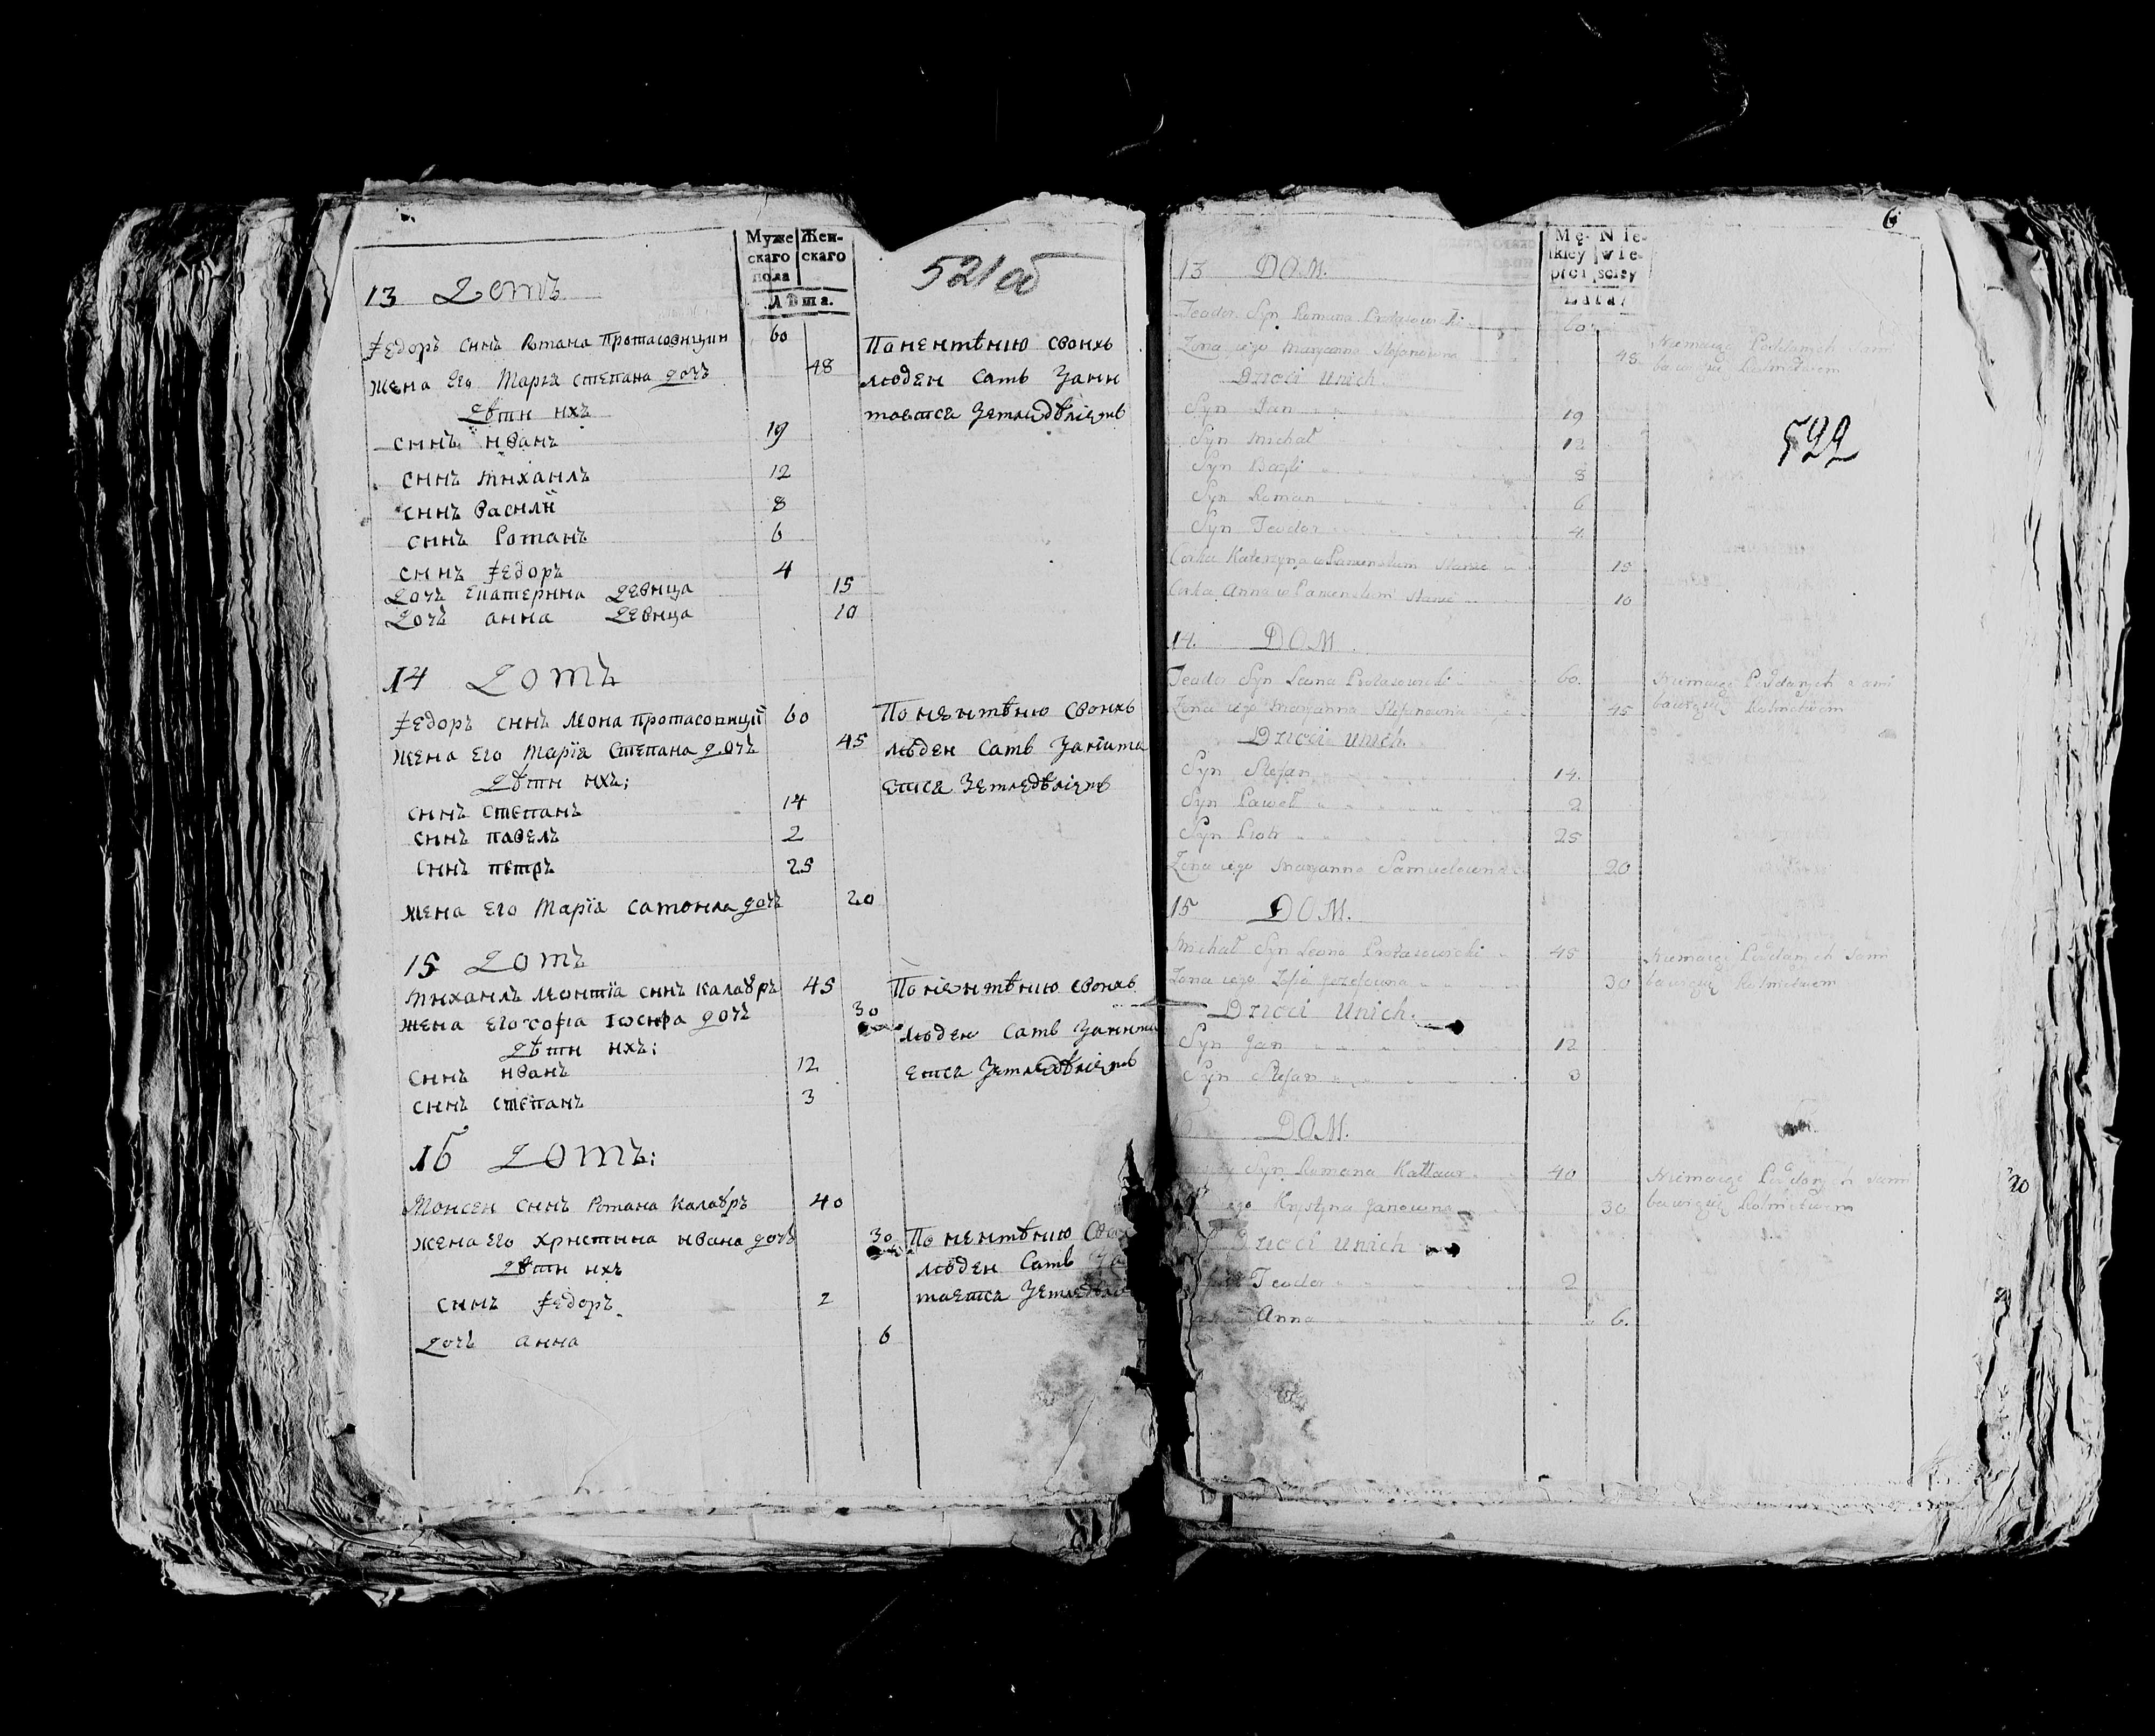 Муже Жен-
скаго скаго
пола
Лѣта.
521 об
13 Домъ
Федоръ синъ Романа Протасовицки 60
жена Его Марїя степана дочъ 48
дѣти ихъ
синъ иванъ 19
синъ михаилъ 12
синъ василїй 8
синъ Романъ 6
синъ Федоръ 4
дочъ Екатерина девица 15
дочъ анна девица 10
По неимѣнию своихъ
людей самъ Зани
маетса Земледѣлiемъ
14 Домъ
Федоръ синъ Леона протасовицкїй 60
жена Его Марїя Степана дочъ 45
дѣти ихъ:
синъ степанъ 14
синъ павелъ 2
синъ петръ 25
жена Его Марїа самоила дочъ 20
По неимѣнию своихъ
людей самъ Занiма
етса Земледѣлiемъ
15 Домъ
михаилъ синъ калаѵръ 45
жена Его софiа Iосифа дочъ 30
дѣти ихъ:
синъ иванъ 12
синъ степанъ 3
По неимѣнию своихъ
людей самъ Занима
етса Земледѣлiемъ
16 Домъ:
Моисей синъ Романа калаѵръ 40
жена Его христина ивана дочъ 30
дѣти ихъ
синъ Федоръ 2
дочъ анна 6
По неимѣнию
людей самъ
маетса
6
Mę- Nie-
ſkiey wie-
płci ſciey
Lata
522
13 DOM.
Teodor Syn Romana Protasowicki 60
Zona iego Maryanna Stefanowna 48
Dzieci Unich
Syn Jan 19
Syn Michał 12
Syn Bazyli 8
Syn Roman 6
Syn Teodor 4
Corka Katerzyna w Panienskim Stanie 15
Corka Anna w Panienskim Stanie 10
Niemaiąc Poddanych sam
bawi się Rolnictwem
14. DOM
Teodor Syn Leona Protasowicki 60.
Zona iego Maryanna Stefanowna 45
Dzieci Unich.
Syn Stefan 14.
Syn Paweł 2
Syn Piotr 25
Zona iego Maryanna Samuelowna 20
Niemaiąc Poddanych sam
bawi się Rolnictwem
15 DOM.
Michał Syn Leona Protasowicki 45
Zona iego Zofia Jozefowna 30
Dzieci Unich.
Syn Jan 12
Syn Stefan 3
Niemaiąc Poddanych sam
bawi się Rolnictwem
DOM.
Syn Romana Kattaur 40
iego Krystyna Janowna 30
Dzieci Unich
Teodor 2
Anna 6.
Niemaiąc Poddanych sam
bawi się Rolnictwem
20